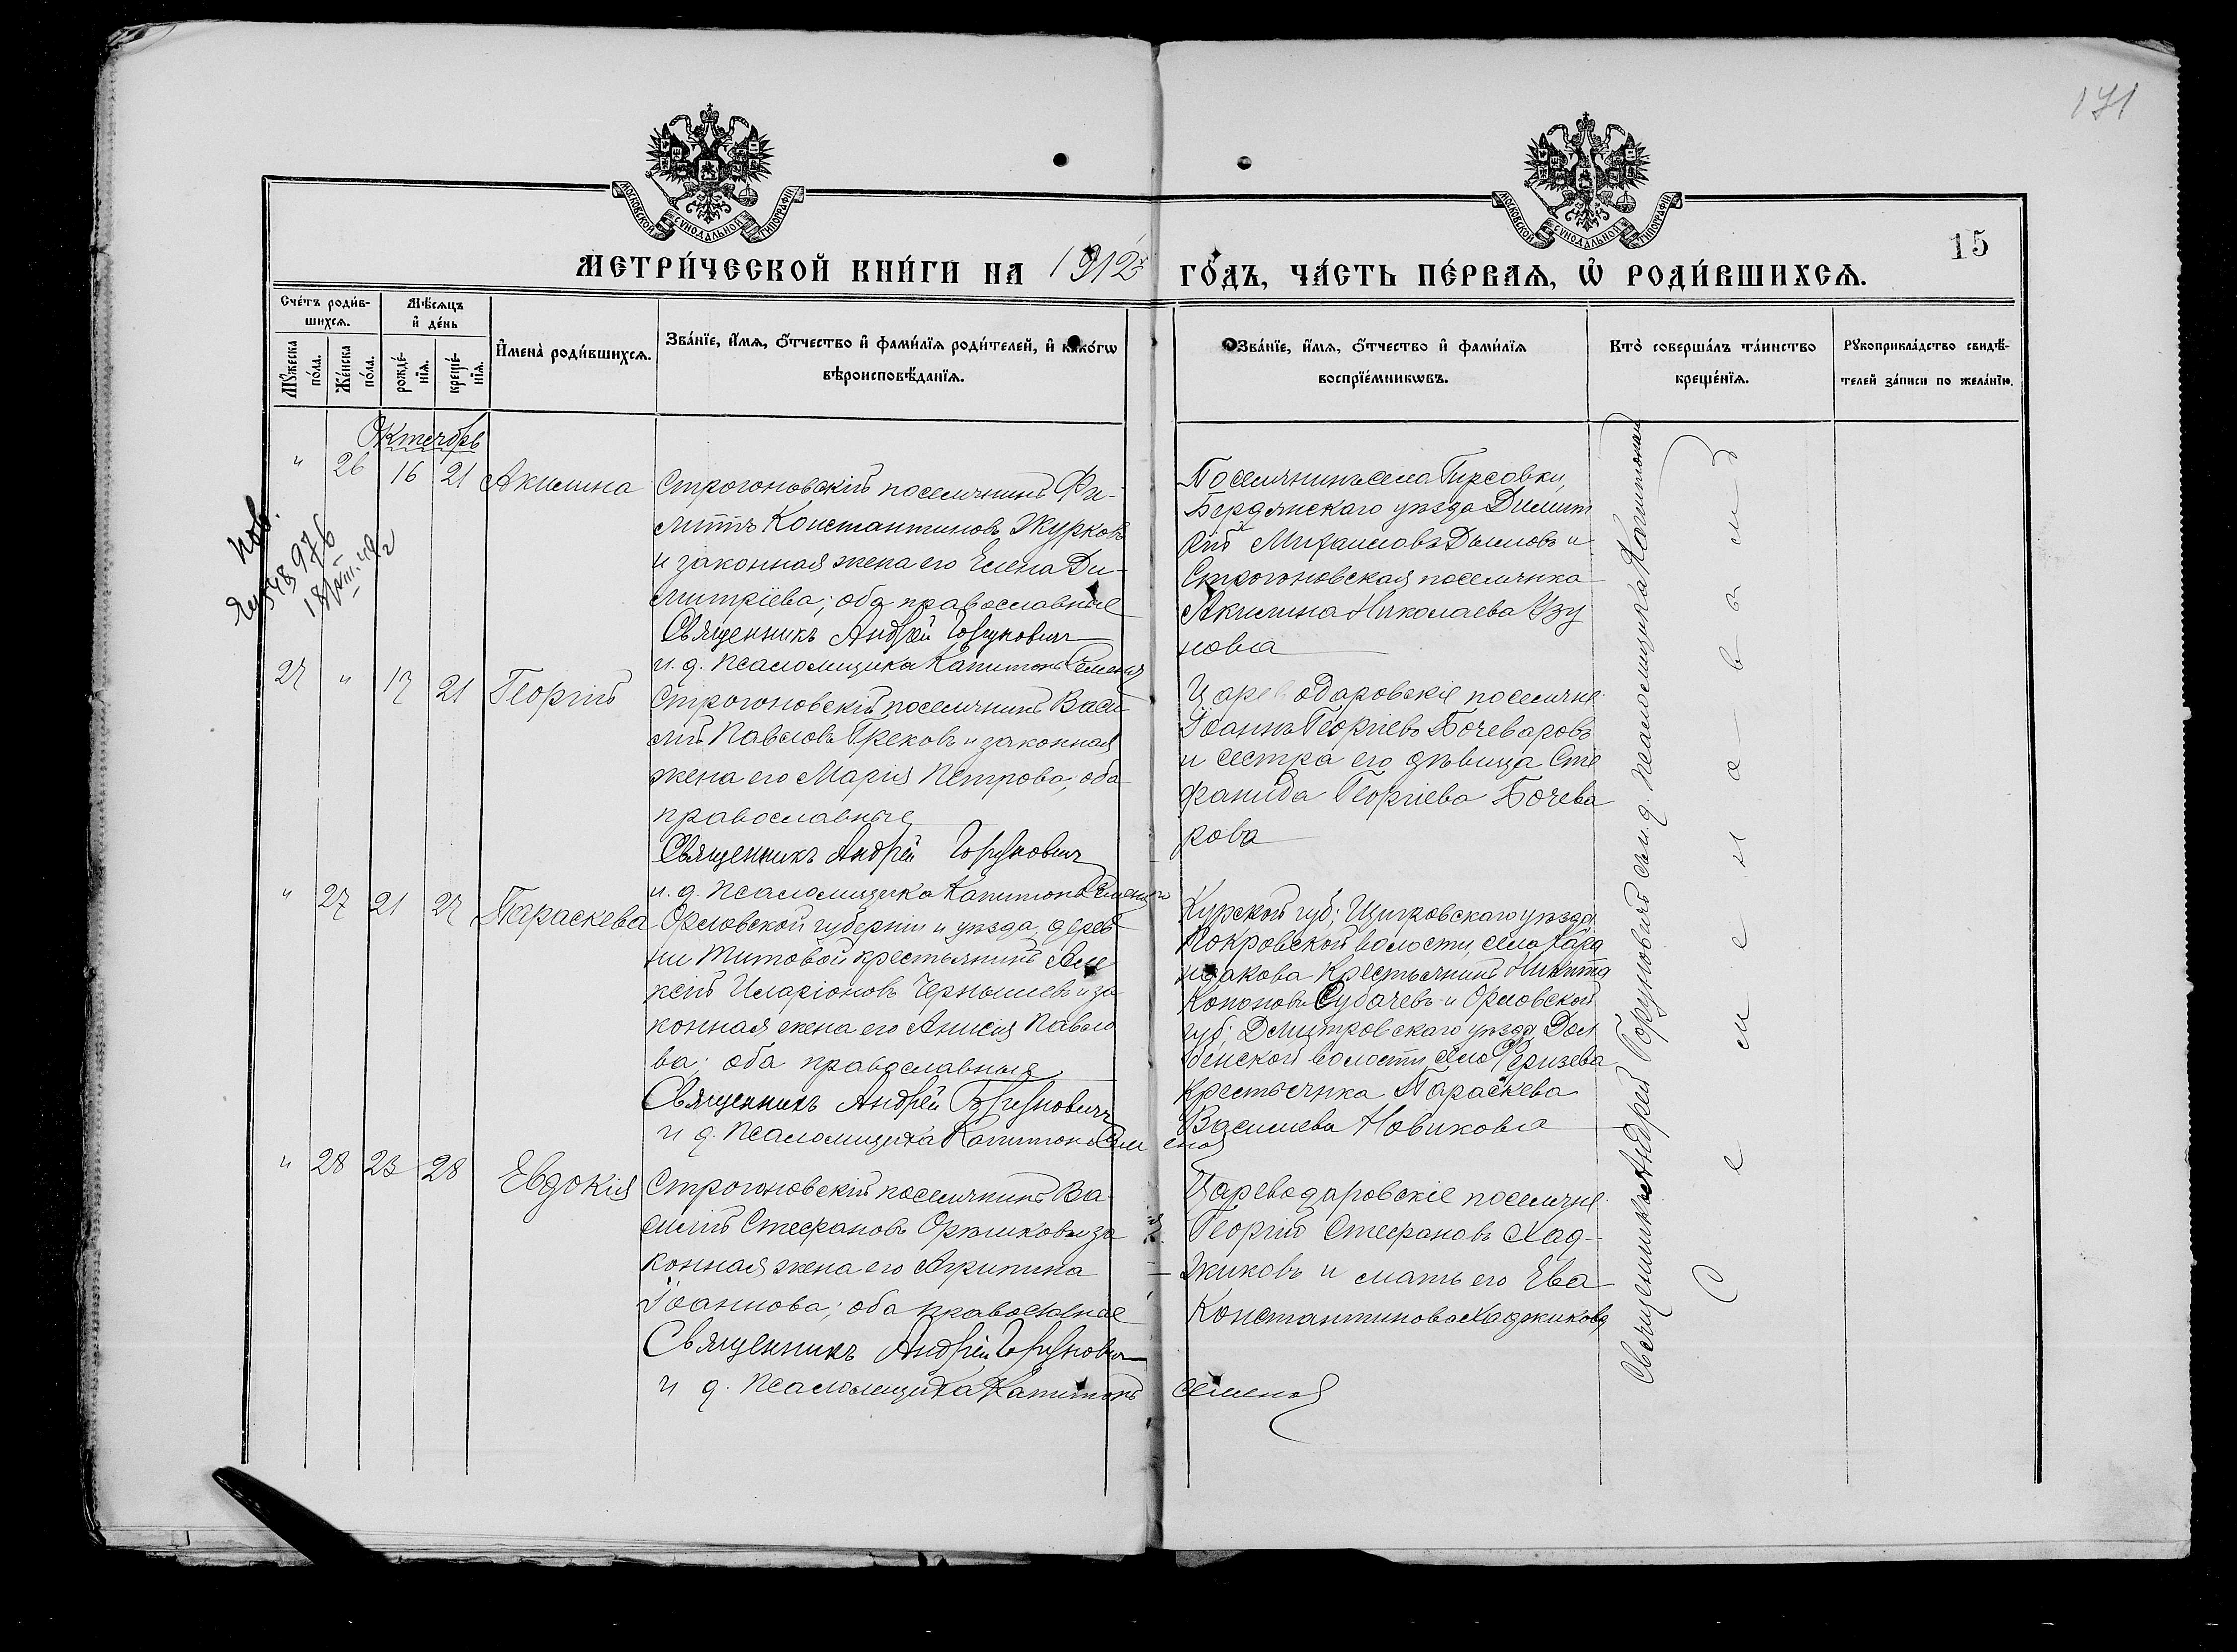 171
МОСКОВСКОЙ СѴНОДАЛЬНОЙ ТИПОГРАФІИ
МОСКОВСКОЙ СѴНОДАЛЬНОЙ ТИПОГРАФІИ
15
МЕТРИ́ЧЕСКОЙ КНИ́ГИ НА 1912 ГО́ДЪ, ЧА́СТЬ ПЕ́РВАЯ, Ѡ РОДИ́ВШИХСЯ.
Сче́тъ роди́в-
шихся.
Мѣсяцъ
и де́нь
Мꙋжеска
по́ла.
Же́нска
по́ла.
рожде́-
нїя.
креще́-
нїя.
Имена̀ роди́вшихся.
Зва́нїе, и́мя, ѻ́тчество и фами́лїя роди́телей, и како́гѡ
вѣроисповѣ́данїя.
Зва́нїе, и́мя, ѻ́тчество и фами́лїя
воспрїе́мникѡвъ.
Кто̀ соверша́лъ та́инство
креще́нїя.
Рꙋкоприкла́дство свидѣ́-
телей за́писи по жела́нїю.
Октябрь
" 26 16 21 Акилина
Строгоновскій поселянинъ Фи-
липпъ Константиновъ Журковъ
и законная жена его Елена Ди-
митріева; оба православные
Священникъ Андрей Горунович
и. д. псаломщика Капитонъ Семенов
Поселянинъ села Гирсовки,
Бердянскаго уѣзда Димит
рій Михаиловъ Дымовъ и
Строгоновская поселянка
Акилина Николаева Узу
нова
Пов.
548976
27 " 17 21 Георгій
Строгоновскій поселянинъ Васи
лій Павловъ Грековъ и законная
жена его Марія Петрова; оба
православные
Священникъ Андрей Горунович
и. д. псаломщика Капитонъ Семенов
Цареводаровскіе поселяне
Іоаннъ Георгіевъ Бочеваровъ
и сестра его дѣвица Сте
фанида Георгіева Бочева
рова
" 27 21 27 Параскева
Орловской губерніи и уѣзда, дерев
ни Титовой крестьянинъ Але
ксѣй Иларіоновъ Чернышевъ и за
конная жена его Анисія Павло
ва; оба православные
Священникъ Андрей Горунович
и д. псаломщика Капитонъ Семенов
Курской губ; Щигровскаго уѣзда
Покровской волости, села
крестьянинъ Никита
Кононовъ Субачевъ и Орловской
губ; Дмитровскаго уѣзда,
волости, села
крестьянка Параскева
Василиева Новикова
" 28 23 28 Евдокія
Строгоновскій поселянинъ Ва-
силій Стефановъ Орѣшковъ и за
конная жена его Агрипина
Іоаннова; оба православные
Священникъ Андрей Горунович
и д. псаломщика Капитонъ Семенов
Цареводаровскіе поселяне
Георгій Стефановъ Хад-
жиковъ и мать его Ева
Константинова Хаджикова
Священникъ Андрей Горуновичъ съ и. д. псаломщика Капитономъ
Семеновымъ